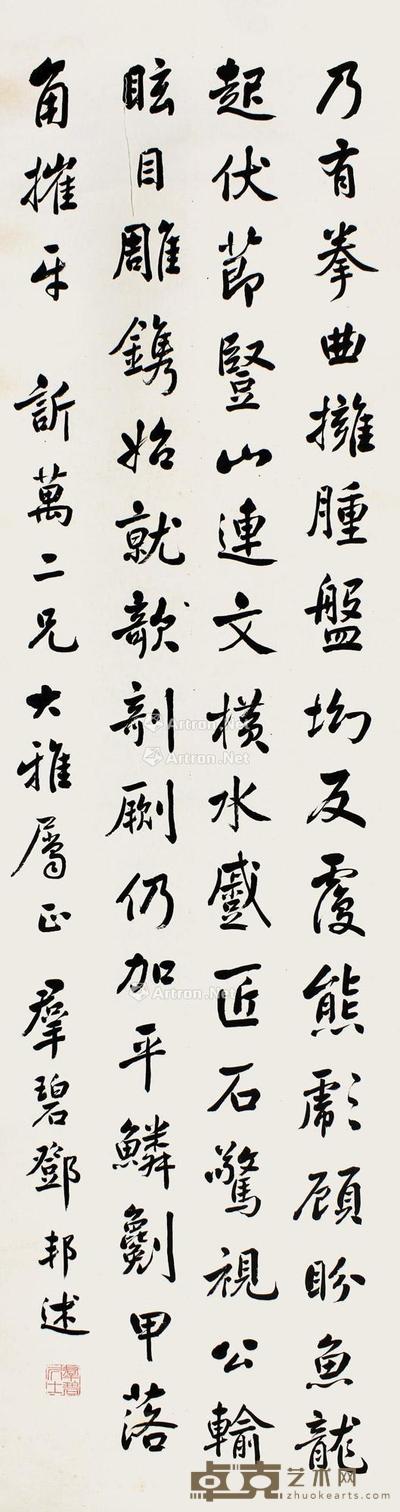 乃有拳曲擁腫盤坳反覆熊彪顧盼魚龍
起伏節豎山連文橫水蹙匠石驚視公輸
眩目雕鐫始就剞劂仍加平鱗剷甲落
角摧牙 訢萬二兄大雅屬正 羣碧鄧邦述
Artron.Net
Artron.Net
Artron.Net
卓克艺术网
zhuokearts.com